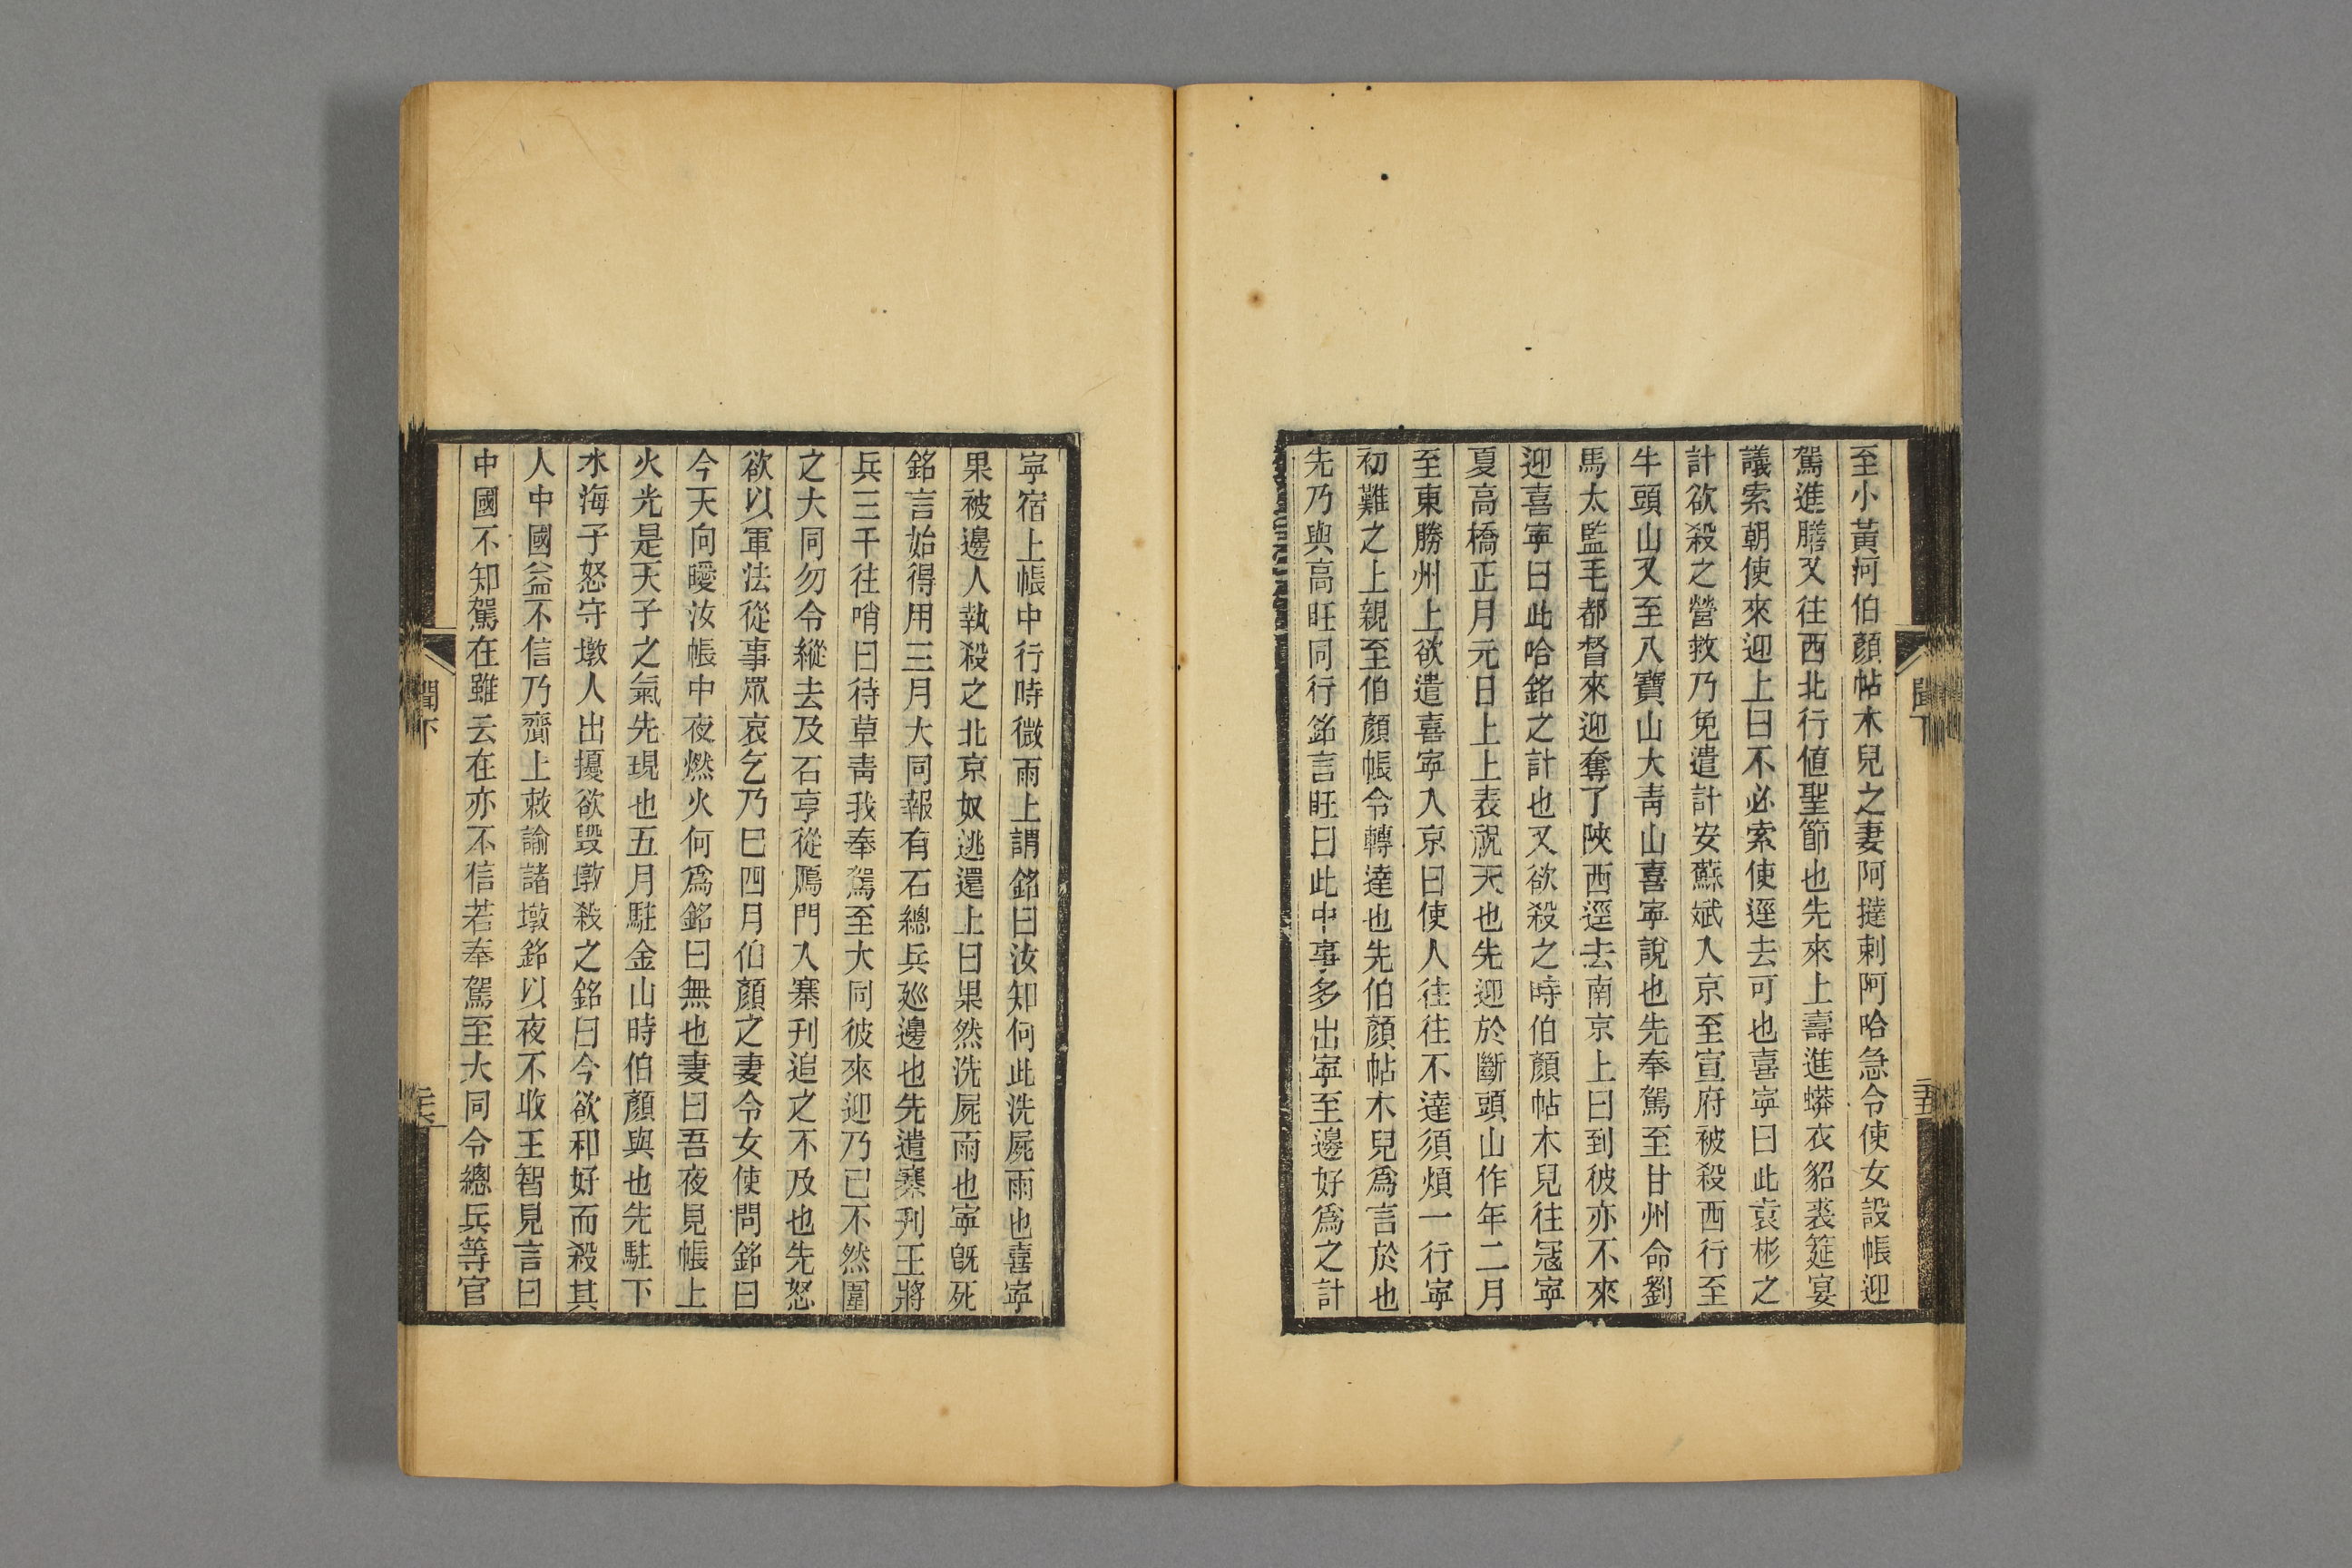 至小黃河伯顏帖木兒之妻阿撻剌阿哈急令使女設帳迎
駕進膳又往西北行値聖節也先來上壽進蟒衣貂裘筵宴
議索朝使來迎上曰不必索使逕去可也喜寧曰此袁彬之
計欲殺之營救乃免遣計安蘇斌入京至宣府被殺西行至
牛頭山又至八寶山大靑山喜寧說也先奉駕至甘州命劉
馬太監毛都督來迎奪了陝西逕去南京上曰到彼亦不來
迎喜寧曰此哈銘之計也又欲殺之時伯顏帖木兒往冦寧
夏高橋正月元日上上表祝天也先迎於斷頭山作年二月
至東勝州上欲遣喜寧入京曰使人往往不達須煩一行寧
初難之上親至伯顏帳令轉達也先伯顏帖木兒爲言於也
先乃與高旺同行銘言旺曰此中事多出寧至邊好爲之計
寧宿上帳中行時微雨上謂銘曰汝知何此洗屍雨也喜寧
果被邊人執殺之北京奴逃還上曰果然洗屍雨也寧旣死
銘言始得用三月大同報有石總兵廵邊也先遣寨刋王將
兵三千往哨曰待草靑我奉駕至大同彼來迎乃已不然圍
之大同勿令縱去及石亨從鴈門入寨刋追之不及也先怒
欲以軍法從事眾哀乞乃巳四月伯顏之妻令女使問銘曰
今天向曖汝帳中夜燃火何爲銘曰無也妻曰吾夜見帳上
火光是天子之氣先現也五月駐金山時伯顏與也先駐下
水海子怒守墩人出擾欲毀墩殺之銘曰今欲和好而殺其
人中國益不信乃齎上敕諭諸墩銘以夜不收王智見言曰
中國不知駕在雖云在亦不信若奉駕至大同令總兵等官